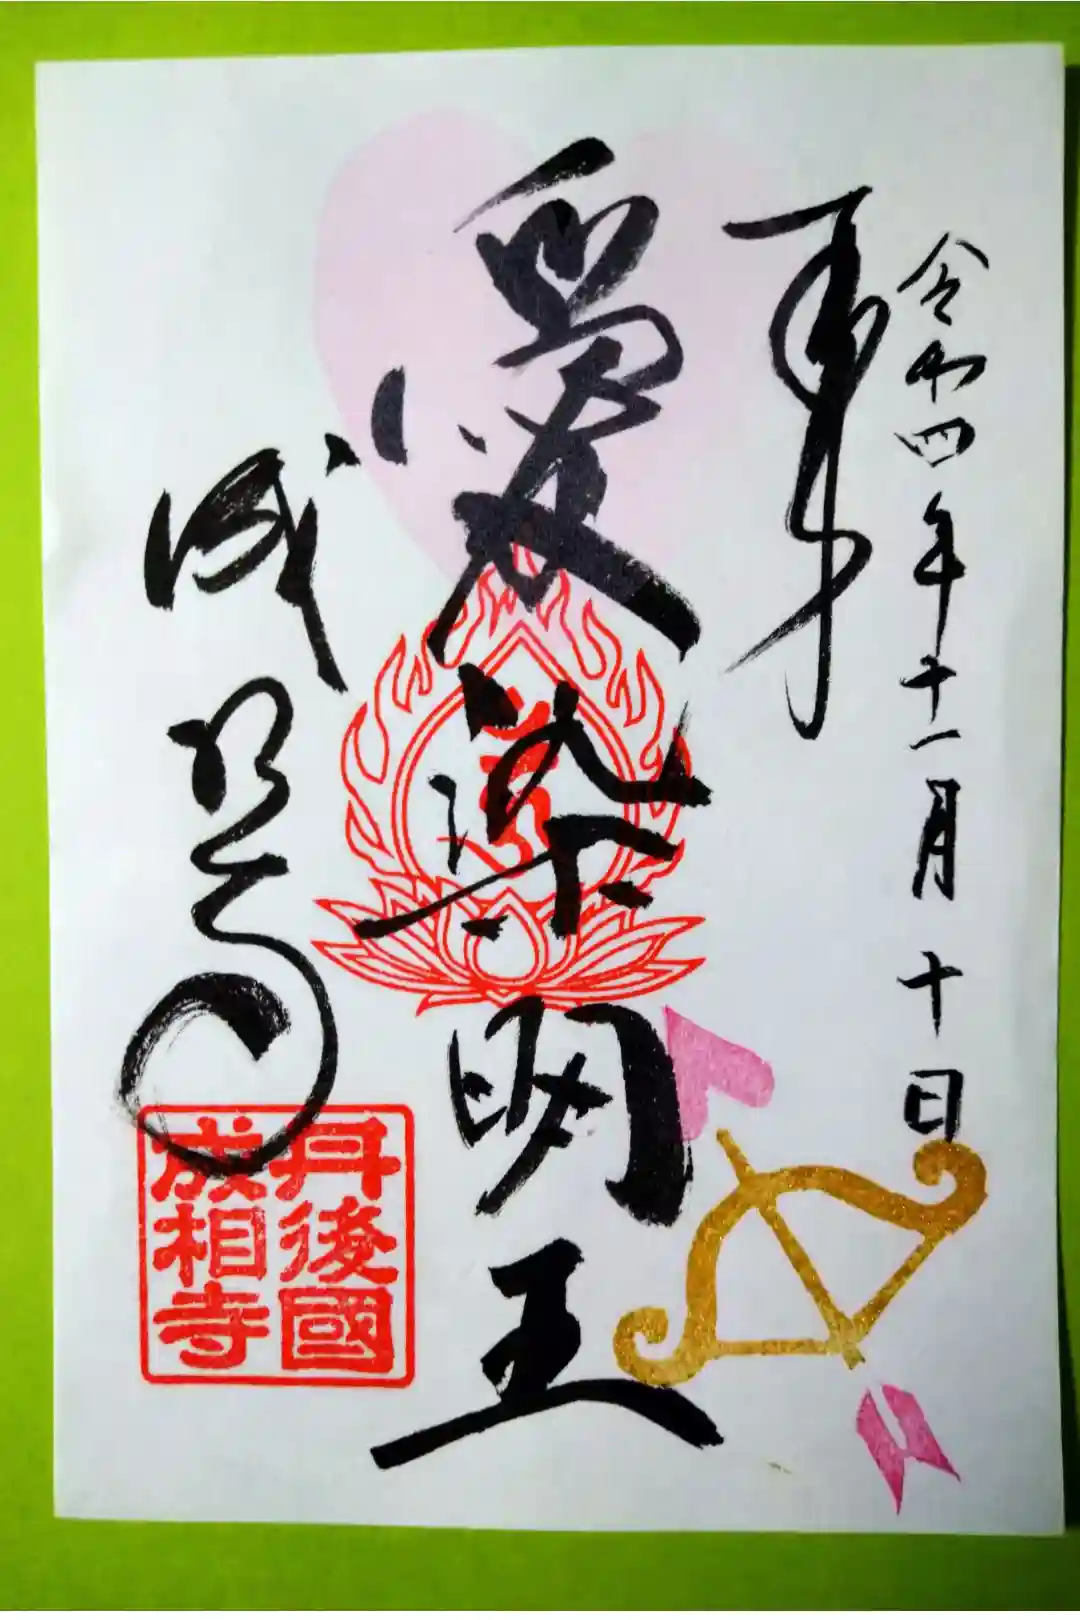 令和四年十一月十日
奉
愛染明王
成相寺
丹後國
成相寺